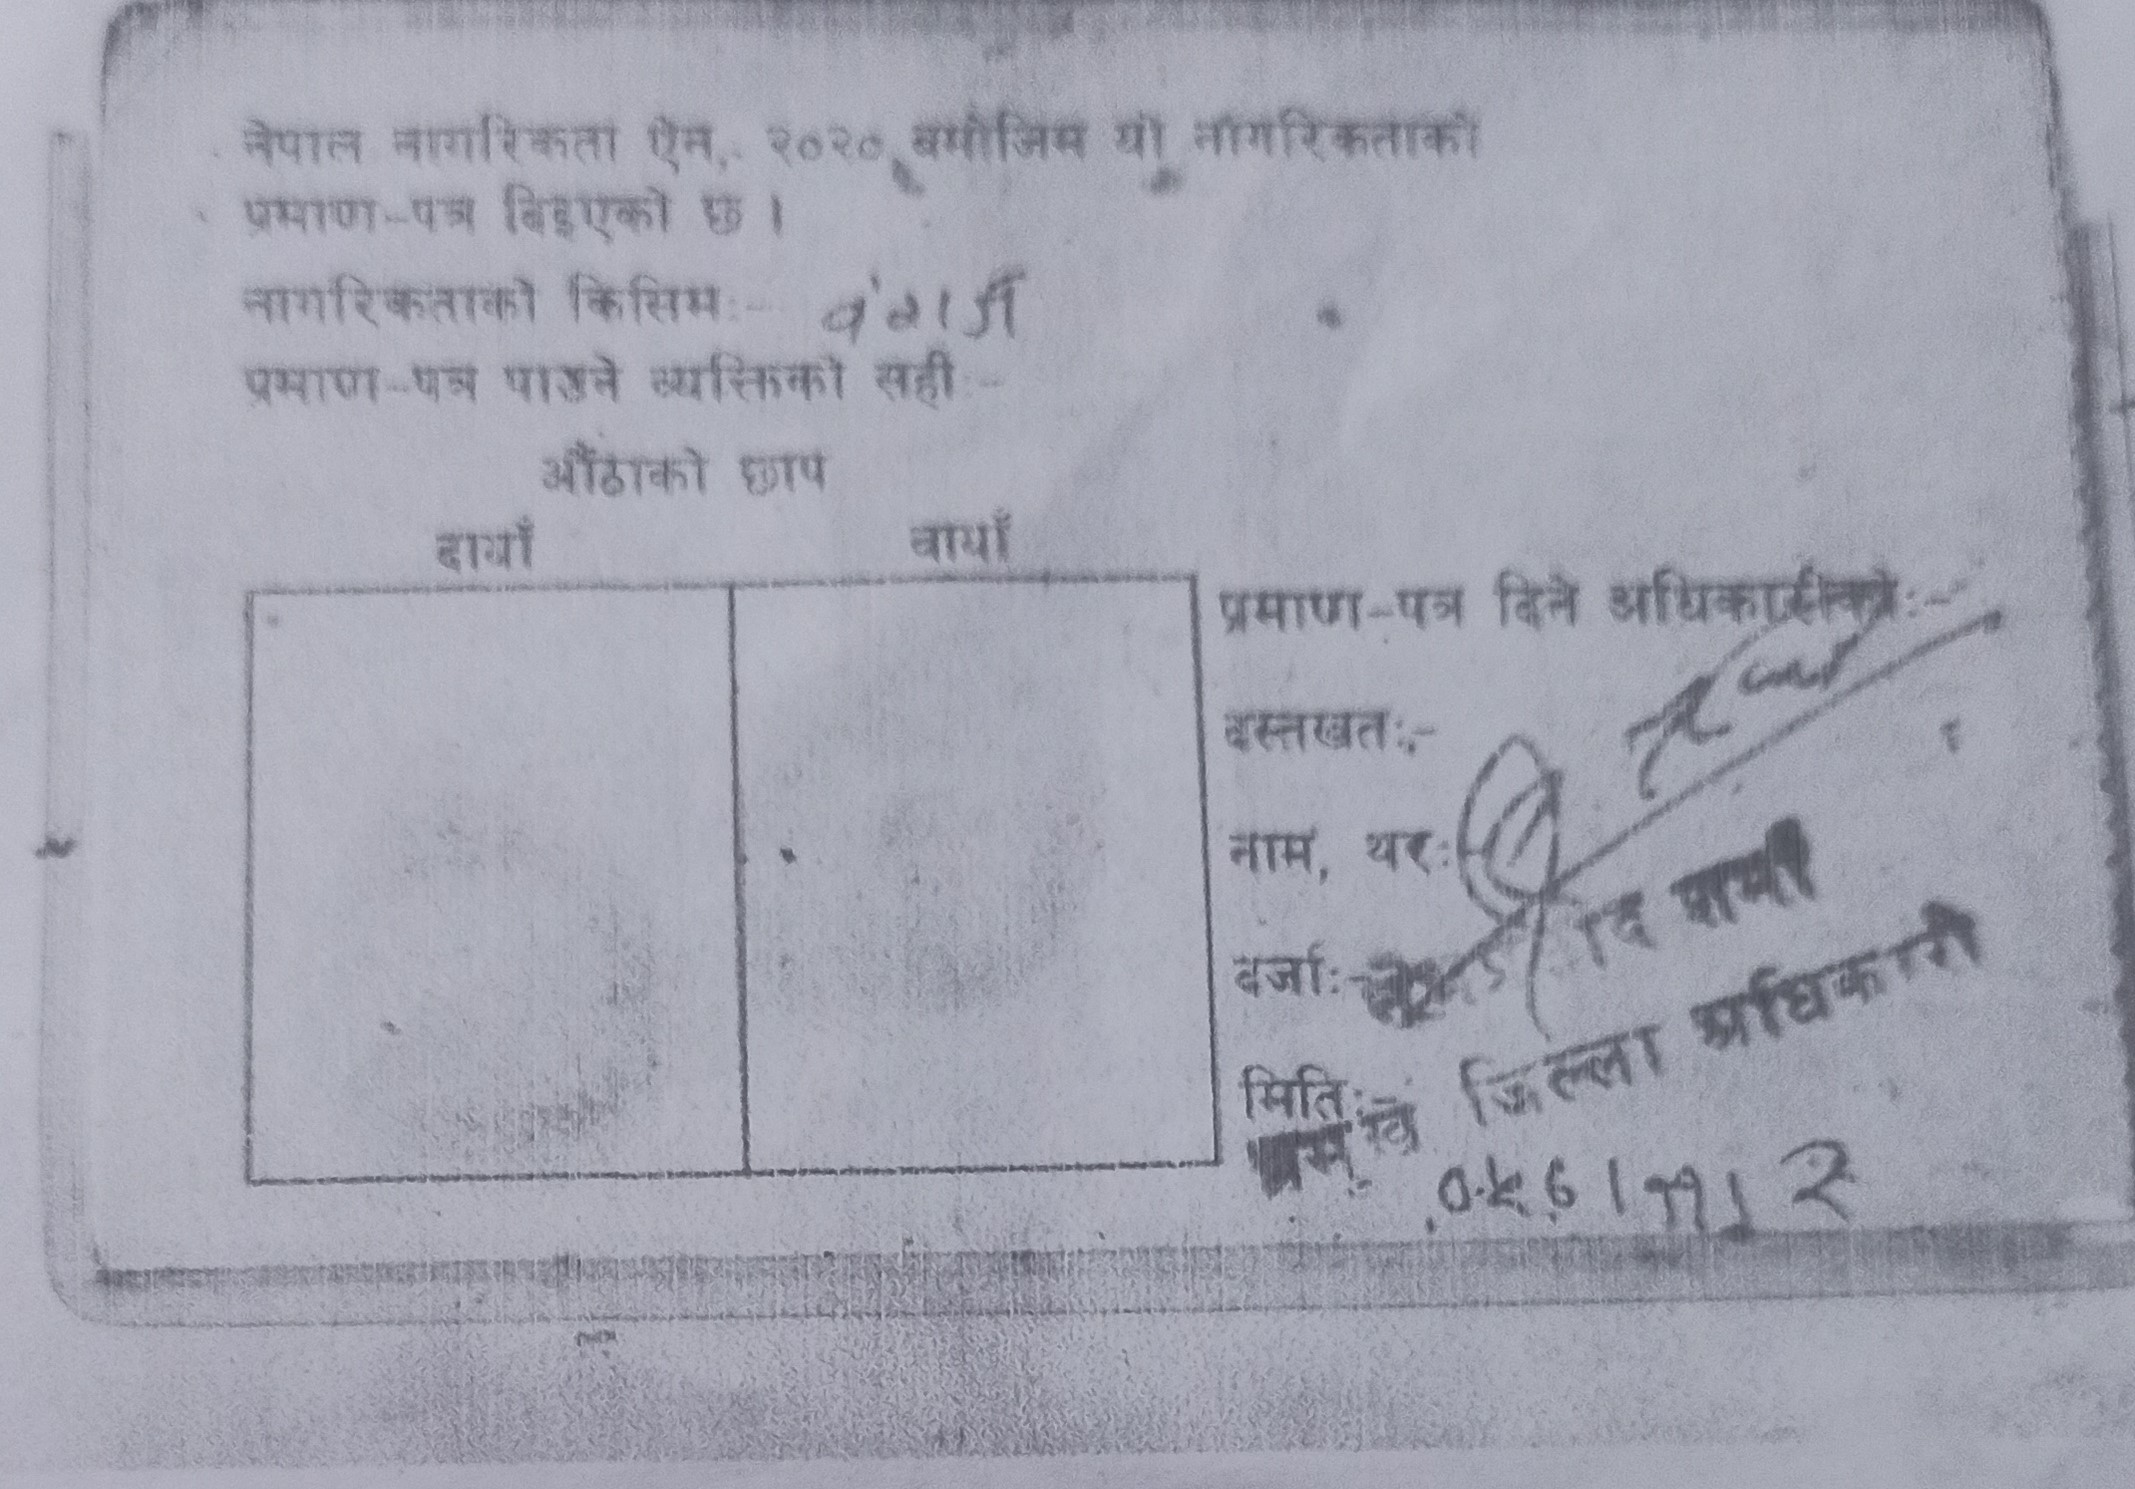 नेपाल नागरिकता ऐन, २०२० बमोजिम यो नागरिकताको
प्रमाण-पत्र दिइएको छ ।
नागरिकताको किसिम:- वंशज
प्रमाण-पत्र पाउने व्यक्तिको सही:-
औंठाको छाप
दायाँ बायाँ
प्रमाण-पत्र दिने अधिकारीको:-
दस्तखत:-
नाम, थर:
दर्जा:-
मिति:-
जिल्ला अधिकारी